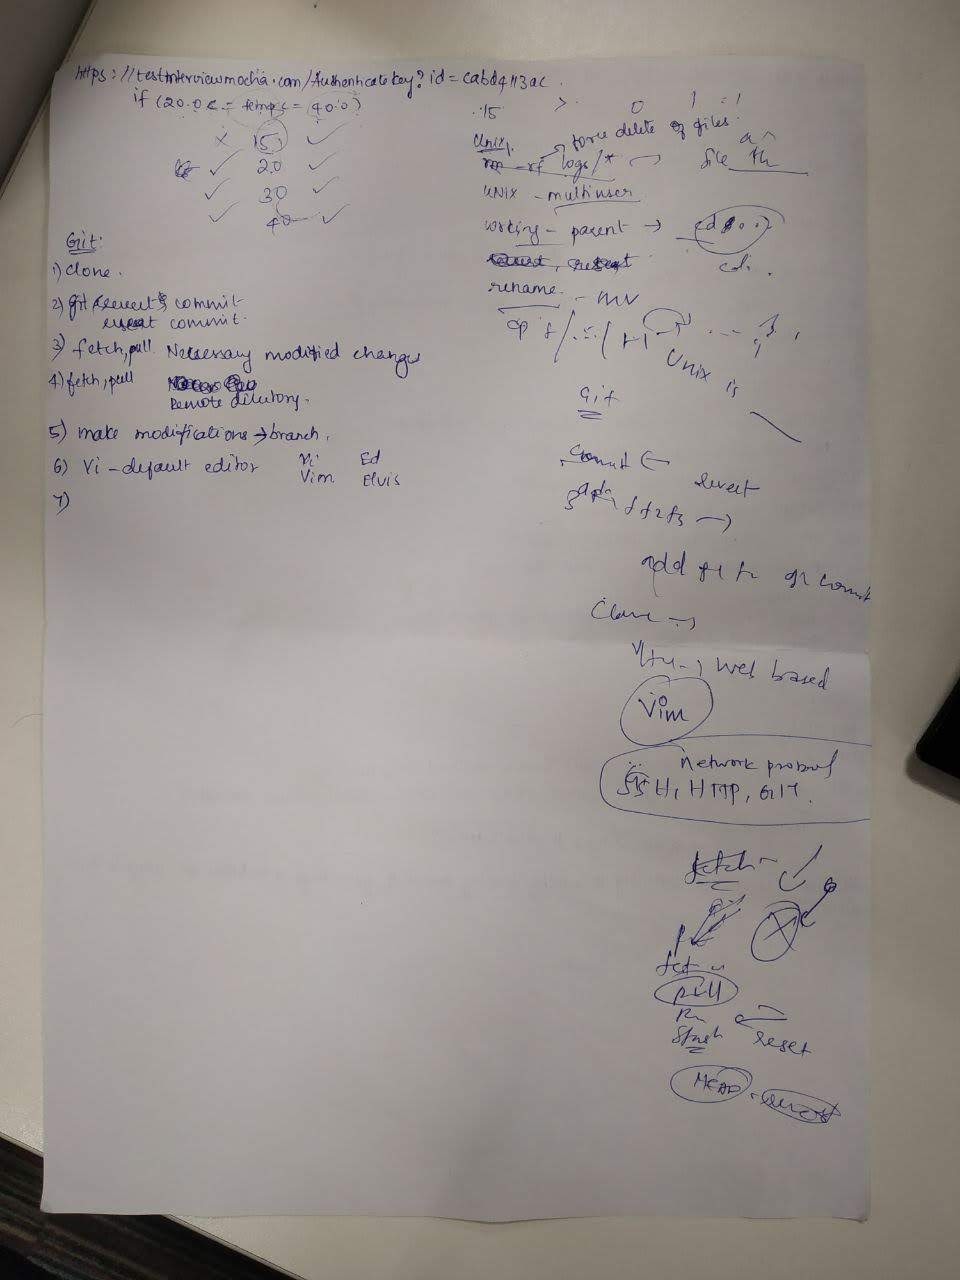 https://testinterviewmocha.com/Authenticatekey?id=cabd4113ac.
if (20.0 <= temps = 40.0)
x 15 ✓
✓ 20 ✓
✓ 30 ✓
✓ 40 ✓
Git:
1) clone.
2) git revert commit
commit.
3) fetch, pull. Necessary modified changes
4) fetch, pull
Remote dilutory.
5) make modifications → branch.
6) Vi - default editor Vi Ed
Vim Elvis
7)
:15 > 0 1
Unix,
force delete of files.
rm -rf logs/* → file
UNIX - multiuser
working - parent → cd ..
cd.
rename - mv
cp
Unix is
Git
commit ←
revert
add f1 f2 f3 →
add f1 f2 commit
Clone →
→ web based
Vim
Network protocol
SSH, HTTP, GIT.
fetch - ✓
pull
Stash reset
HEAD